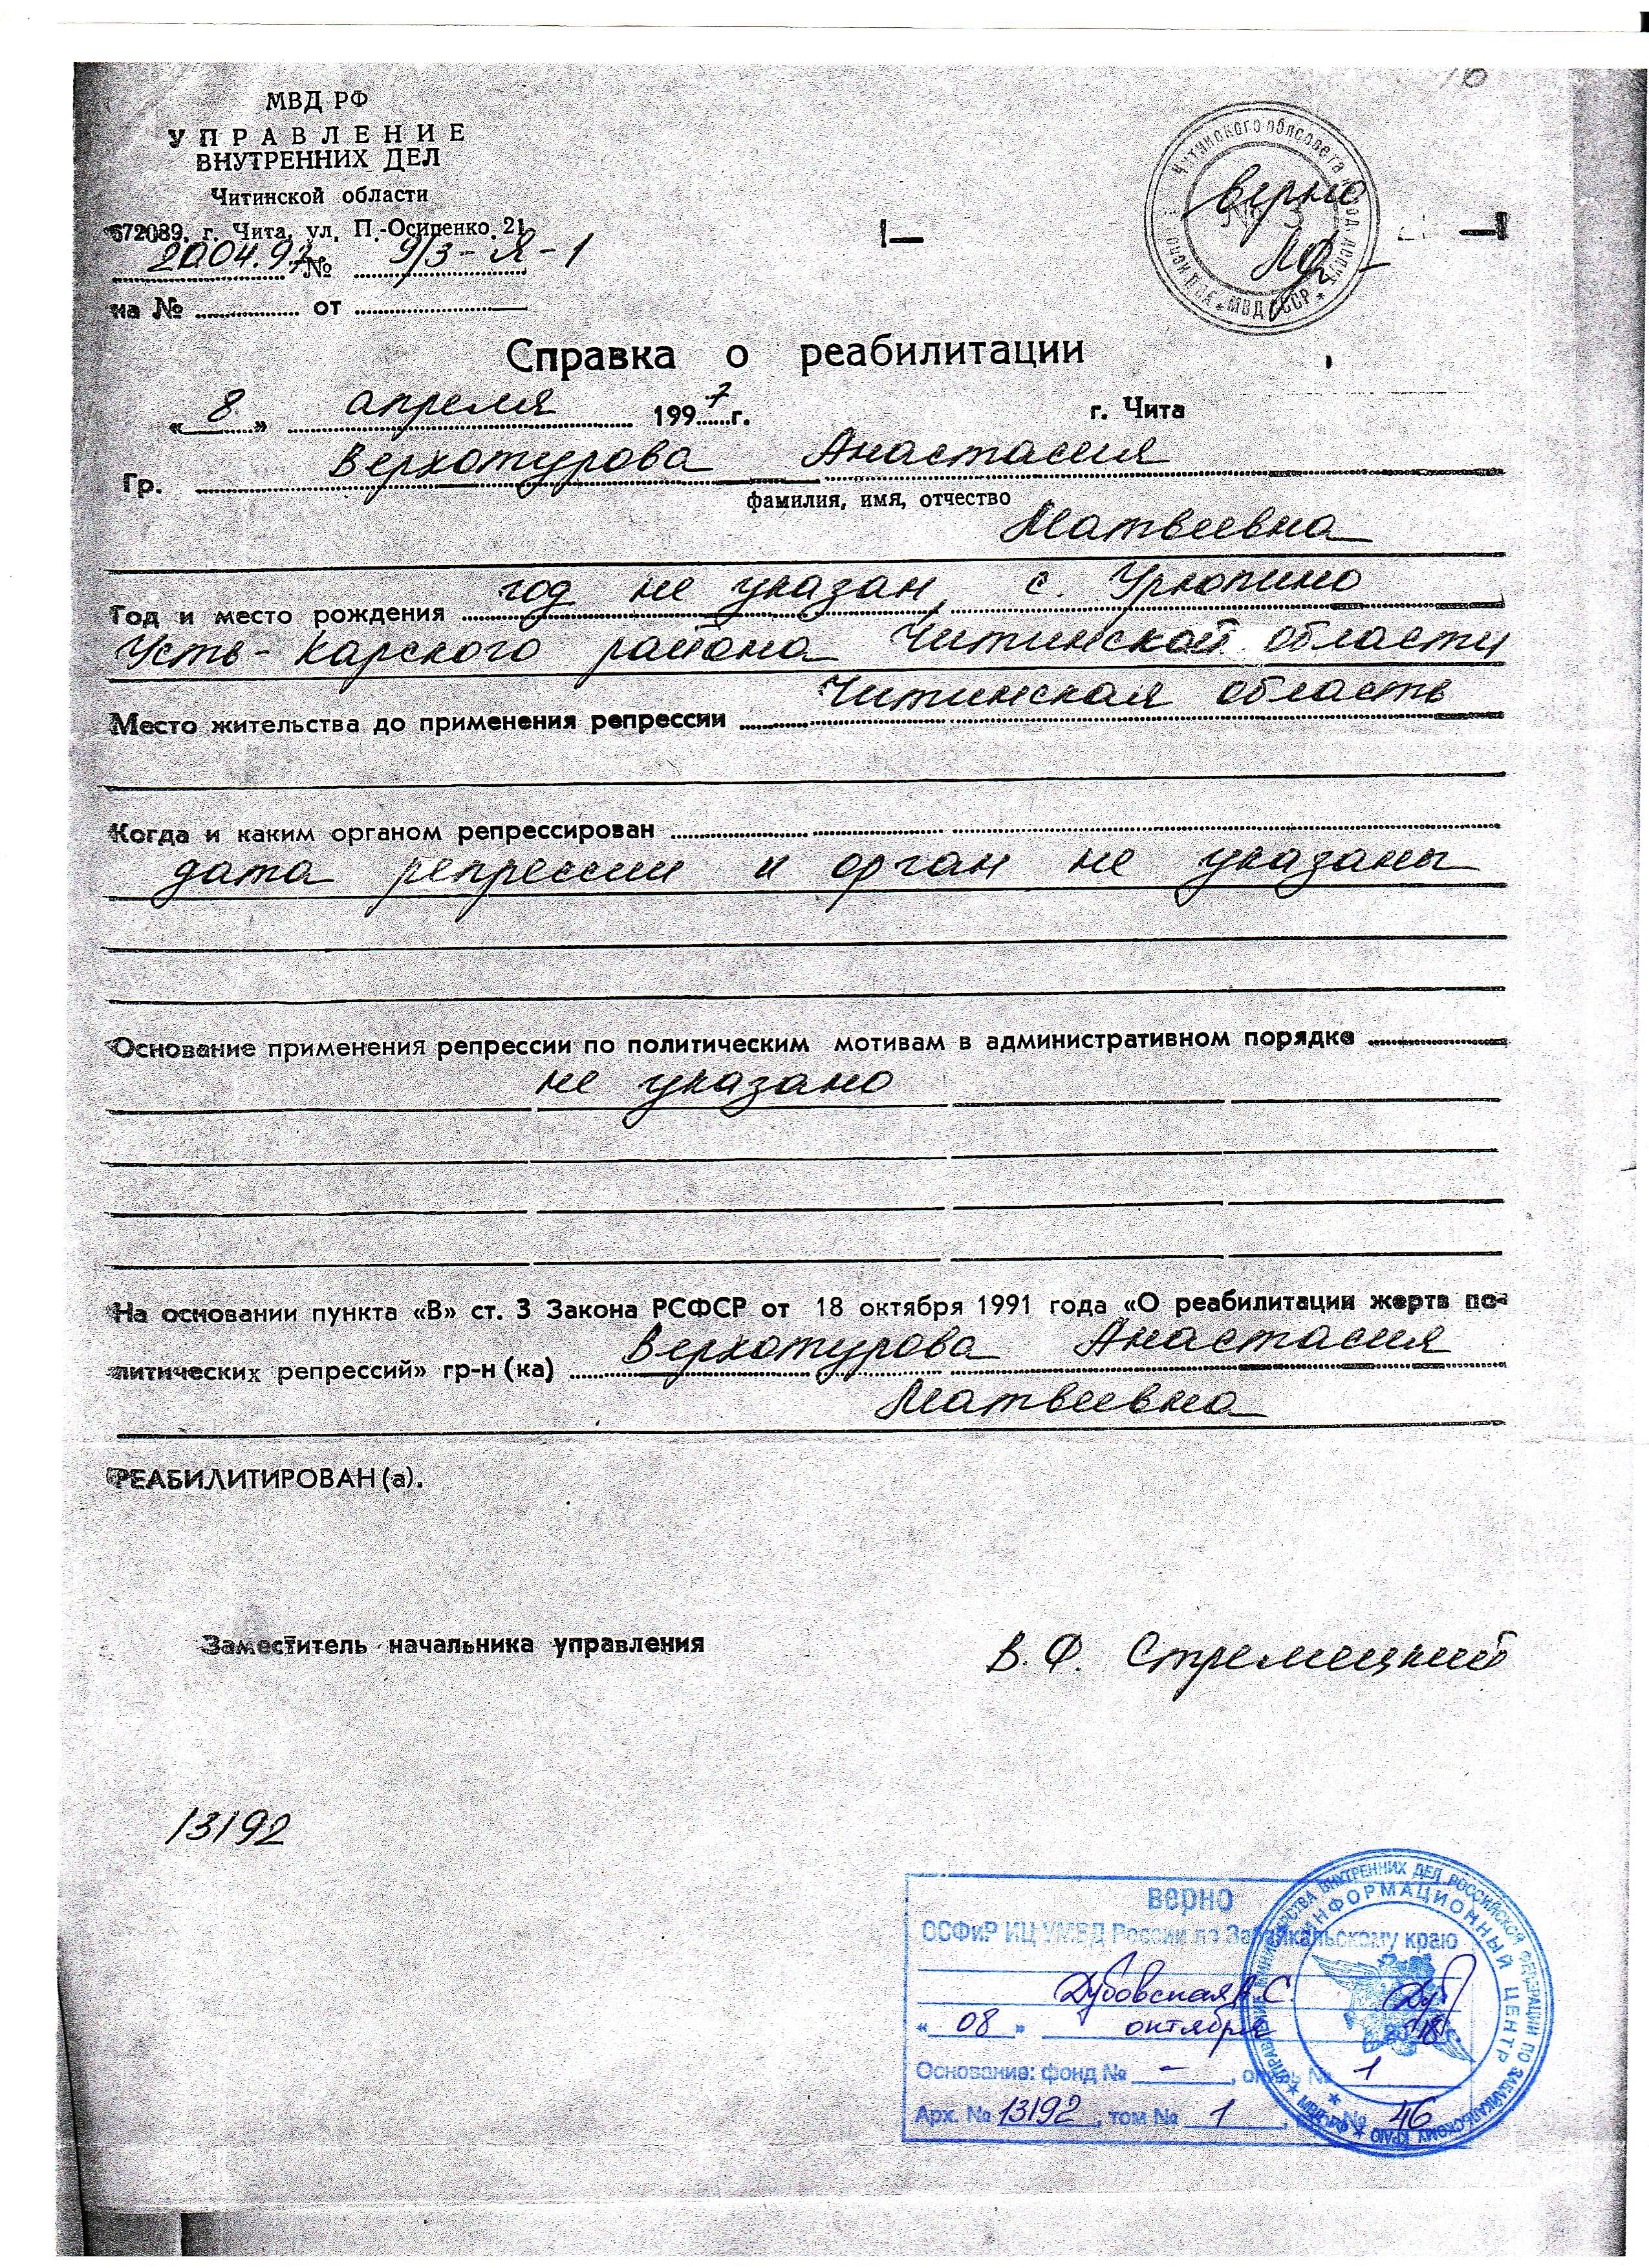 МВД РФ
УПРАВЛЕНИЕ
ВНУТРЕННИХ ДЕЛ
Читинской области
672089, г. Чита, ул. П.-Осипенко, 21
20.04.97 № 9/3-Я-1
на № от
Читинского облсовета
МВД СССР
№ 3
верно
Справка о реабилитации
« 8 » апреля 1997 г. г. Чита
Гр. Верхотурова Анастасия
фамилия, имя, отчество
Матвеевна
Год и место рождения год не указан, с. Урюпино
Усть-Карского района Читинской области
Место жительства до применения репрессии Читинская область
Когда и каким органом репрессирован
дата репрессии и орган не указаны
Основание применения репрессии по политическим мотивам в административном порядке
не указано
На основании пункта «В» ст. 3 Закона РСФСР от 18 октября 1991 года «О реабилитации жертв по-
литических репрессий» гр-н (ка) Верхотурова Анастасия
Матвеевна
РЕАБИЛИТИРОВАН(а).
Заместитель начальника управления В. Ф. Стремецкий
13192
верно
ОСФиР ИЦ УМВД России по Забайкальскому краю
Дубовская А.С.
« 08 » октября
Основание: фонд № – , опись № 1
Арх. № 13192, том № 1, № 46
УПРАВЛЕНИЕ МИНИСТЕРСТВА ВНУТРЕННИХ ДЕЛ РОССИЙСКОЙ ФЕДЕРАЦИИ ПО ЗАБАЙКАЛЬСКОМУ КРАЮ
ИНФОРМАЦИОННЫЙ ЦЕНТР